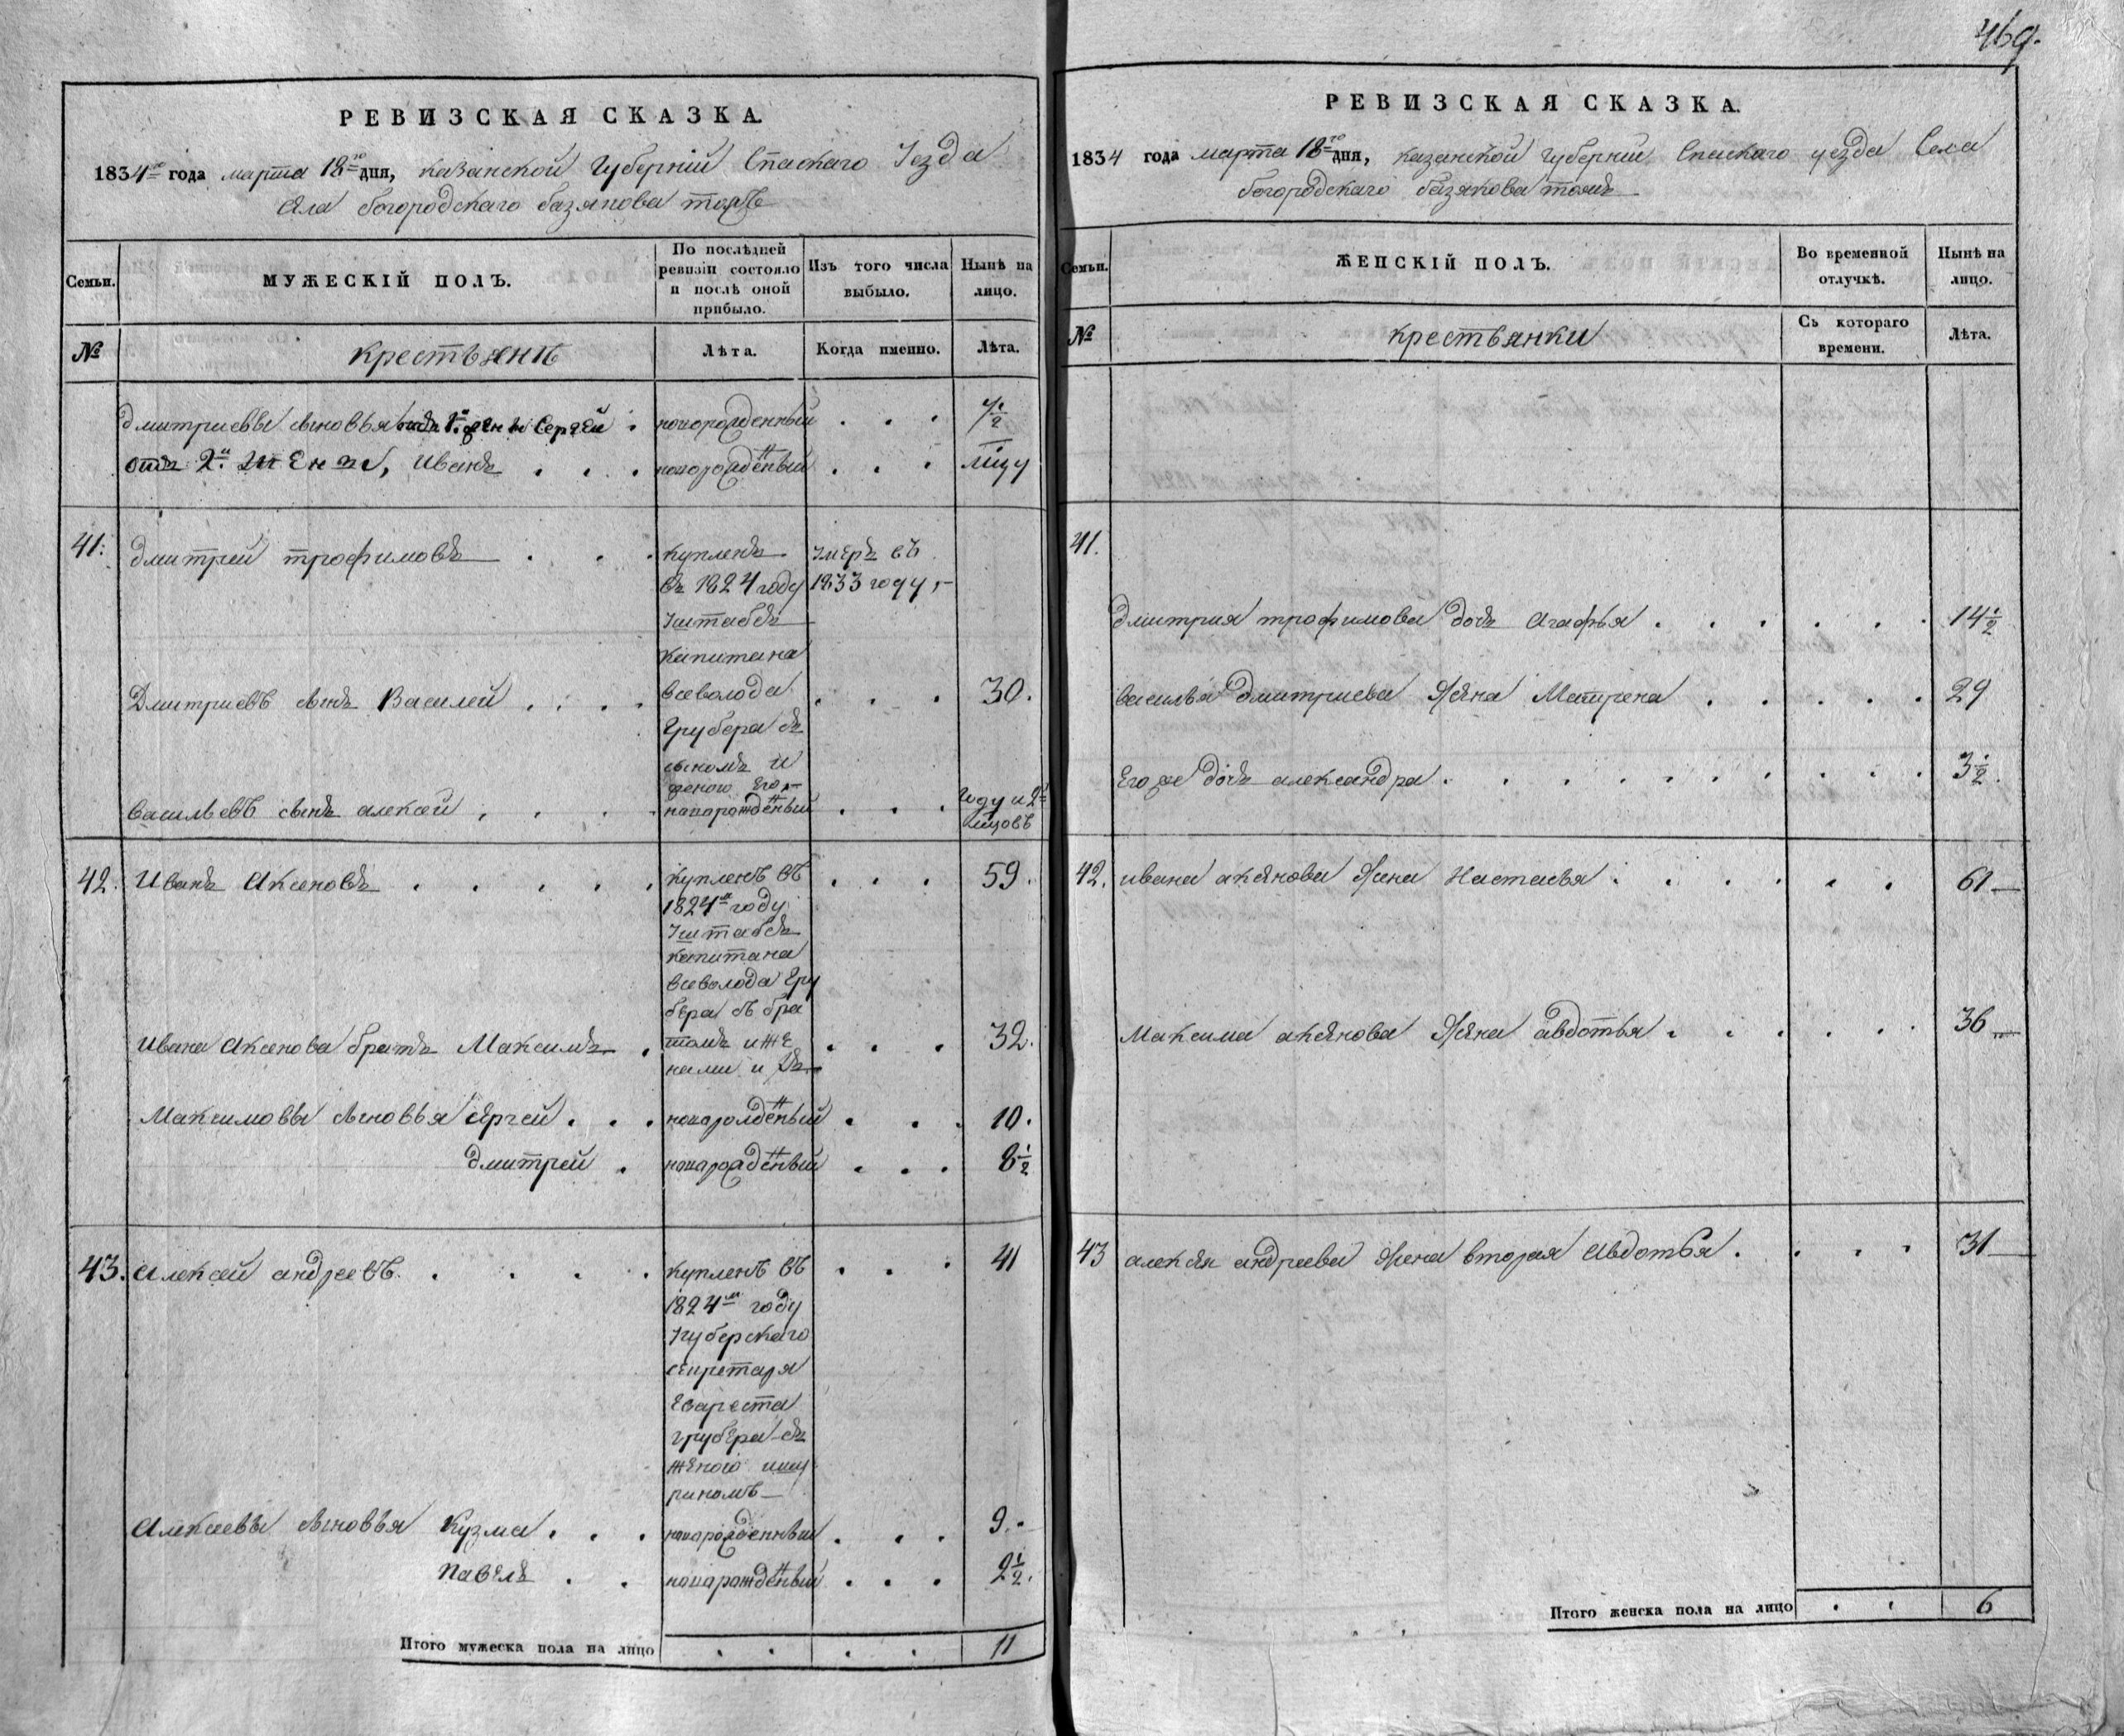 469.
РЕВИЗСКАЯ СКАЗКА.
1834го года марта 18го дня, казанской Губернiй Спаскаго Уезда
села богородскаго базякова тожъ
Семьи.
МУЖЕСКIЙ ПОЛЪ.
По послѣдней ревизiи состояло и послѣ оной прибыло.
Изъ того числа выбыло.
Нынѣ на лицо.
№
крестьянѣ
Лѣта.
Когда именно.
Лѣта.
дмитриевы сыновья отъ 1й жены Сергей . новорожденный . . . 7½
отъ 2й жены, Иванъ . . . новорожденый . . . мцу
41. дмитрей трофимовъ . . . купленъ умеръ въ
въ 1824 году 1833 году
Уштабсъ
капитана
Дмитриевъ сынъ Василей . . . . всеволода . . . 30.
Грубера съ
сыномъ и
женою Его
васильевъ сынъ алексей . . . . новорожденый . . . году и 2
мцовъ
42. Иванъ Аксеновъ . . . . . купленъ въ . . . 59.
1824м году
Уштабсъ
капитана
всеволода гру
бера съ бра
Ивана Аксенова братъ Максимъ . томъ и же . . . 32.
нами и
Максимовы сыновья сергей . . . новорожденый . . . 10.
дмитрей . новорожденый . . . 8½
43. Алексей андреевъ . . . . купленъ въ . . . 41
1824м году
Угуберскаго
секретаря
Евареста
грубера съ
женою
Алексеевы сыновья Кузма . . . новорожденный . . . 9.
Павелъ . . новорожденый . . . 2½.
Итого мужеска пола на лицо . . . . 11
РЕВИЗСКАЯ СКАЗКА.
1834 года марта 18го дня, казанской губернiи Спаскаго уезда Села
богородскаго базякова тожъ
Семьи.
ЖЕНСКIЙ ПОЛЪ.
Во временной отлучкѣ.
Нынѣ на лицо.
№
крестьянки
Съ котораго времени.
Лѣта.
41.
дмитрия трофимова дочь агафья . . . . . . 14½
василья дмитриева жена Матрена . . . . . 29
Его же дочь александра . . . . . . . . . 3½.
42. ивана аксенова жена Настасья . . . . . . 61
Максима аксенова жена авдотья . . . . . . 36
43 алексея андреева жена вторая авдотья . . . . 31
Итого женска пола на лицо . . 6